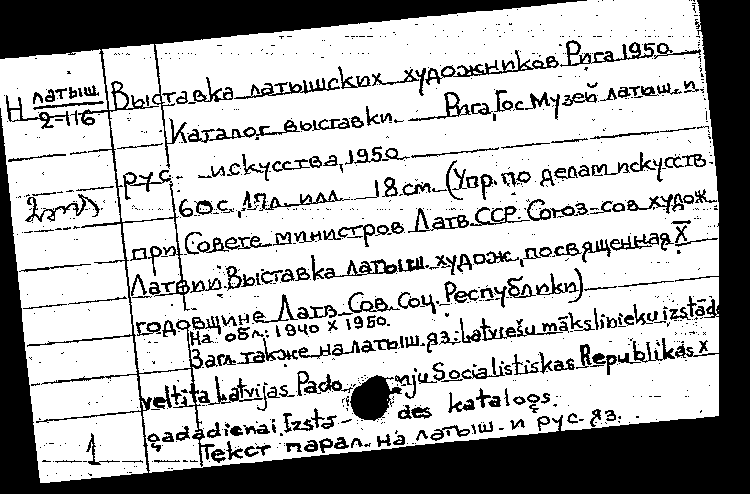 Н латыш 2-116 Выставка латышских художников. Рига 1950.
Каталог выставки. Рига, Гос. Музей латыш. и
рус. искусства, 1950
60 с, 17 л. илл. 18 см. (Упр. по делам искусств.
при Совете министров Латв. ССР. Союз сов. худож.
Латвии. Выставка латыш. худож, посвященная X
годовщине Латв. Сов. Соц. Республики)
На обл: 1940 X 1950.
Загл. также на латыш. яз.: Latviešu mākslinieku izstāde
veltita Latvijas Pado njuSocialistiskas Republikas X
gadadienai. Izsta-des katalogs.
1 Текст парал. на латыш. и рус. яз.